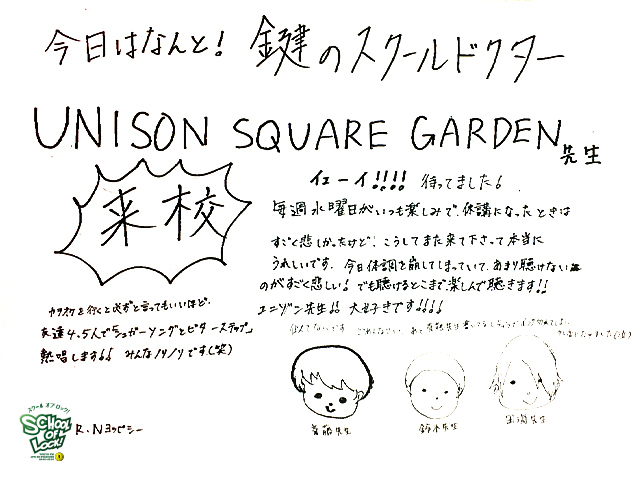 今日はなんと! 鍵のスクールドクター
UNISON SQUARE GARDEN先生
来校
イェーイ!!!! 待ってました!
毎週水曜日がいつも楽しみで、休講になったときは
すごく悲しかったけど、こうしてまた来て下さって本当に
うれしいです。今日体調を崩してしまっていて、あまり聴けない
のがすごく悲しい! でも聴けるとこまで楽しんで聴きます!!
ユニゾン先生!! 大好きです!!!!
カラオケを行くと必ずと言ってもいいほど、
友達4、5人で「シュガーソングとビターステップ」
熱唱します!! みんなノリノリです(笑)
似てないです ごめんなさい。
斎藤先生
鈴木先生
田淵先生
スクール オブ ロック!
SCHOOL OF LOCK!
R.N ヨッピシー